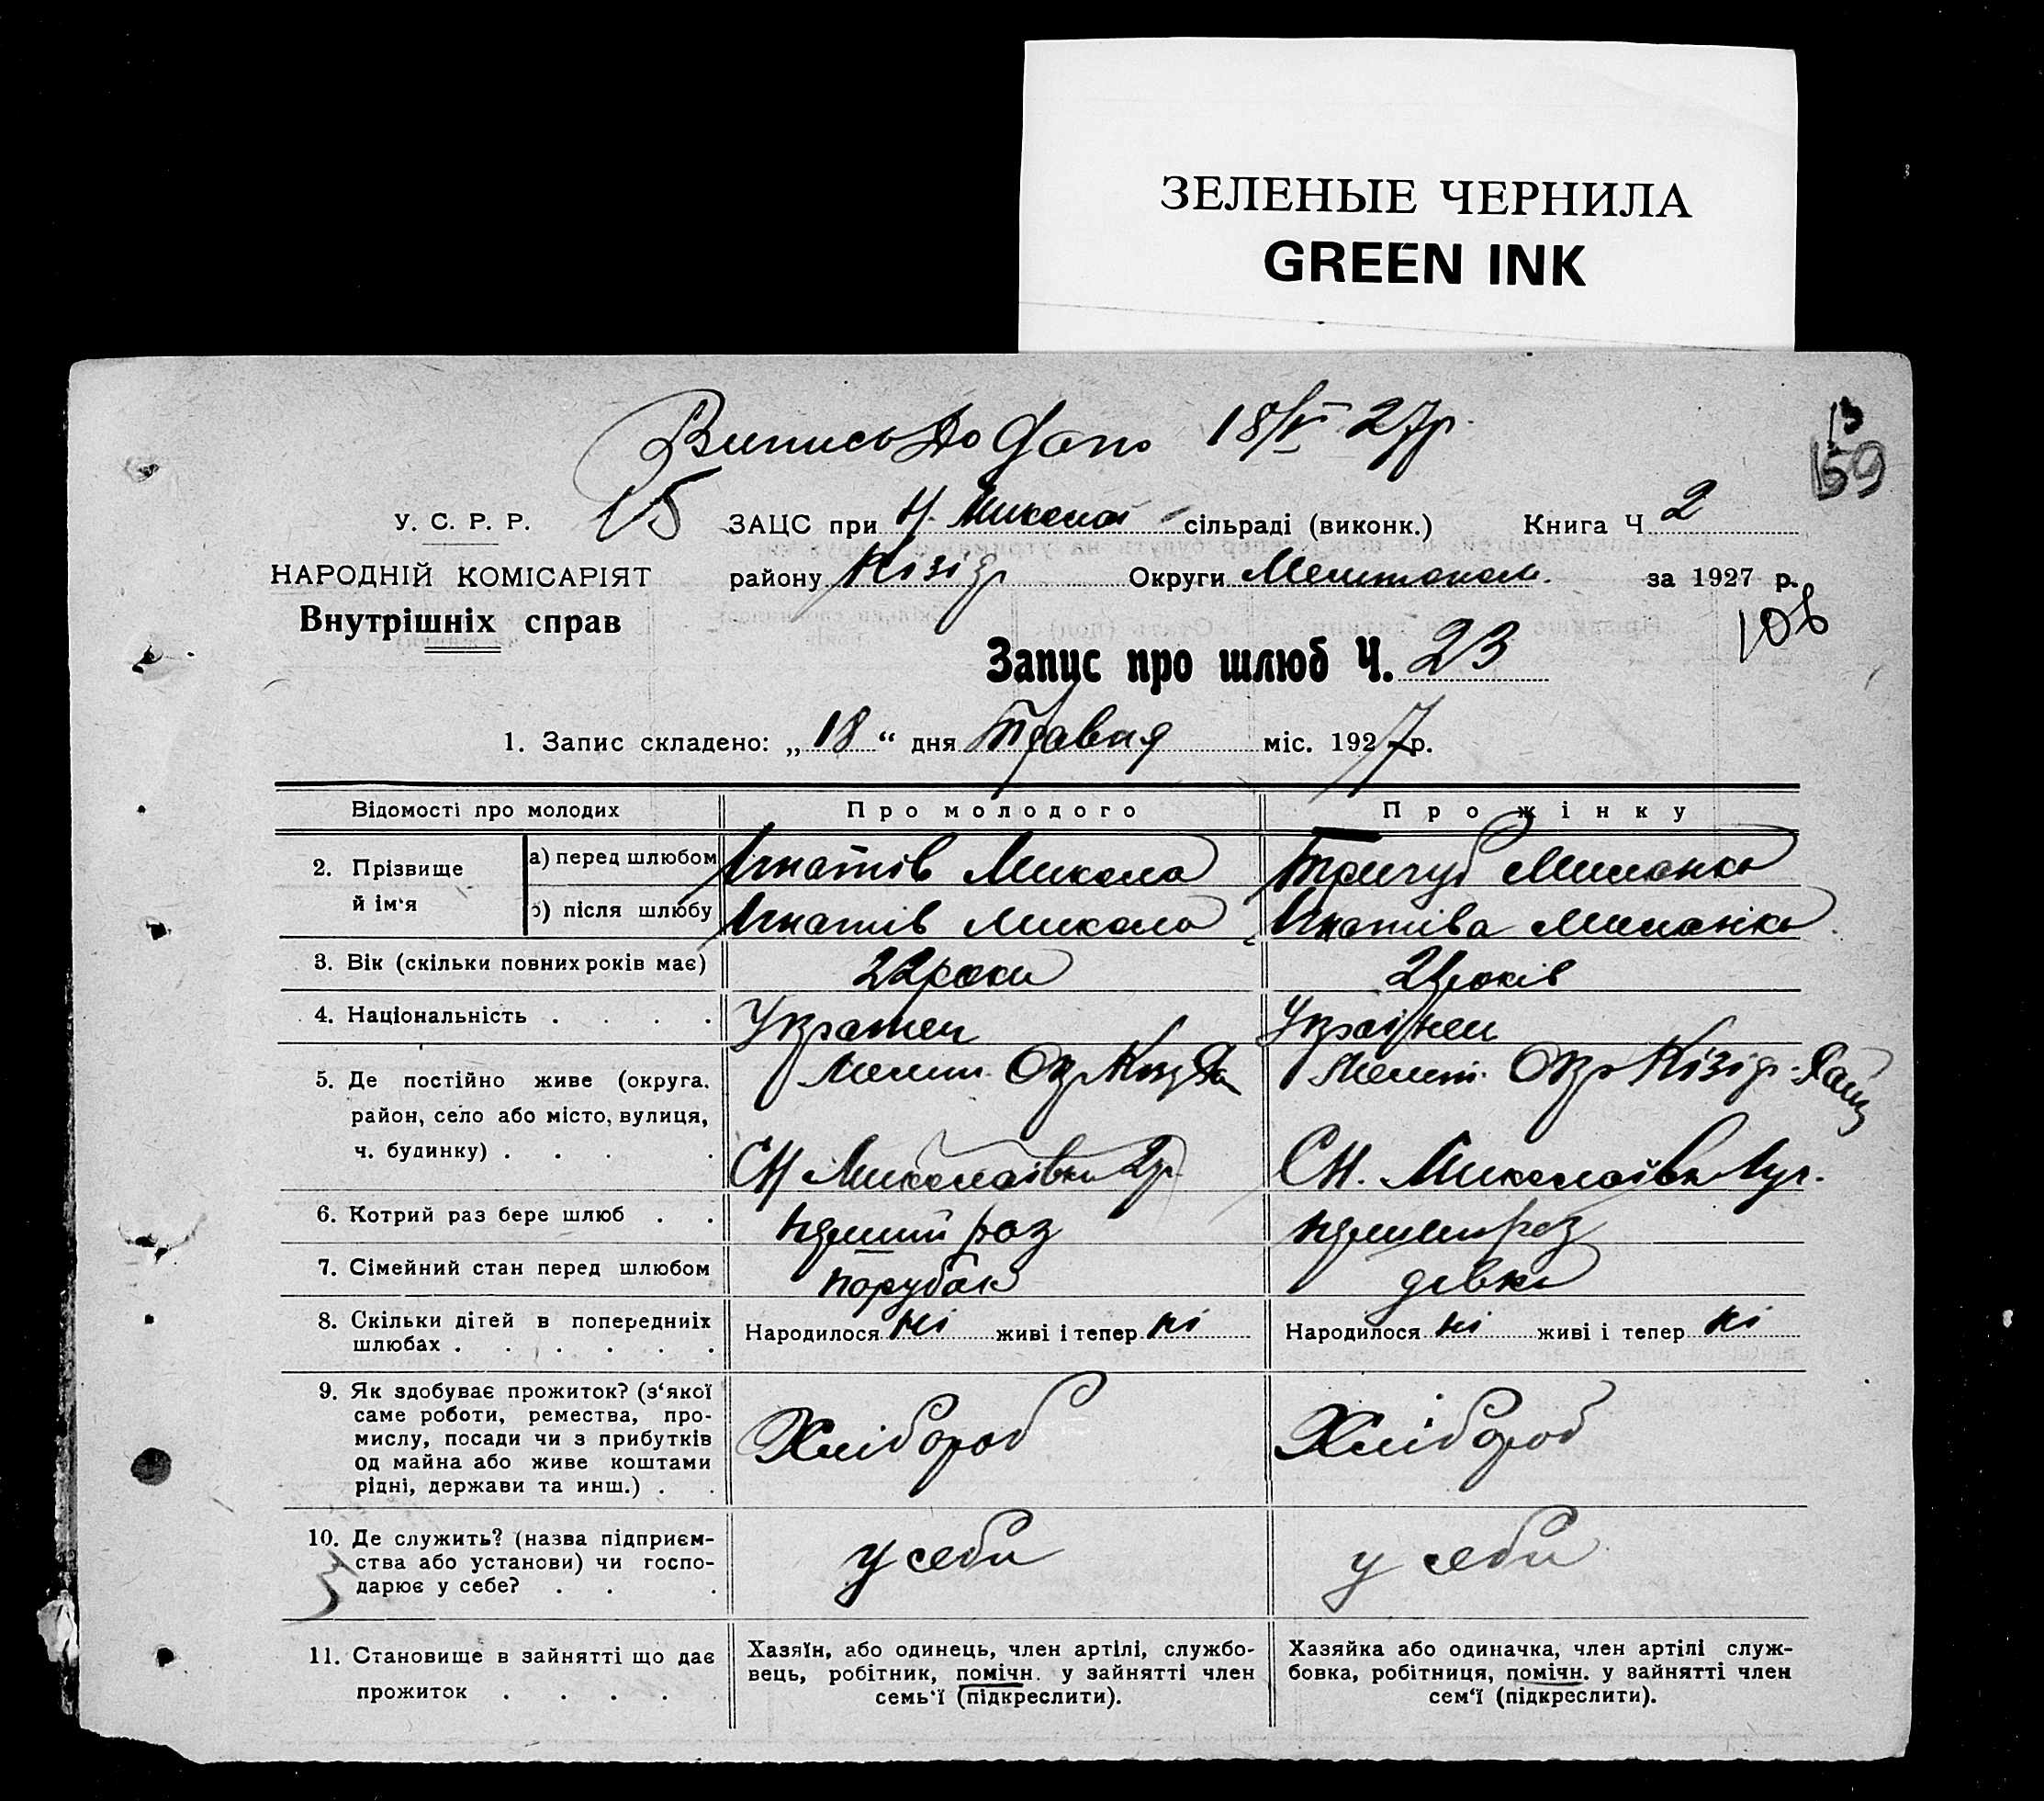 ЗЕЛЕНЫЕ ЧЕРНИЛА
GREEN INK
Випись 18/V 27р.
13
159
15
У. С. Р. Р.
ЗАЦС при Н. Микола сільраді (виконк.) Книга Ч 2
НАРОДНІЙ КОМІСАРІЯТ
району Кізіяр Округи Мелитопол. за 1927 р.
Внутрішніх справ
108
Запис про шлюб Ч. 23
1. Запис складено: „18“ дня Травня міс. 1927 р.
Відомості про молодих Про молодого Про жінку
2. Прізвище й ім‘я
а) перед шлюбом Ігнатів Микола Миланка
б) після шлюбу Ігнатів Микола Ігнатіва Миланка
3. Вік (скільки повних років має) 22 роки років
4. Національність . . . . Украинец Украінец
5. Де постійно живе (округа, Мелит. Окр Мелит. Окр Кізіяр.
район, село або місто, вулиця,
ч. будинку) . . . . С Н Миколаівка С Н. Миколаівка
6. Котрий раз бере шлюб . . перший раз перший раз
7. Сімейний стан перед шлюбом порубак дівка
8. Скільки дітей в попередниіх шлюбах . . . . . . Народилося ні живі і тепер ні Народилося ні живі і тепер ні
9. Як здобуває прожиток? (з‘якої
саме роботи, ремества, про-
мислу, посади чи з прибутків Хлібороб Хлібороб
од майна або живе коштами
рідні, держави та инш.) . .
10. Де служить? (назва підприєм-
ства або установи) чи госпо- у себи у себи
дарює у себе? . . .
11. Становище в зайнятті що дає
прожиток . . . . .
Хазяїн, або одинець, член артілі, службо-
вець, робітник, помічн. у зайнятті член
семь‘ї (підкреслити).
Хазяйка або одиначка, член артілі служ-
бовка, робітниця, помічн. у зайнятті член
сем‘ї (підкреслити).